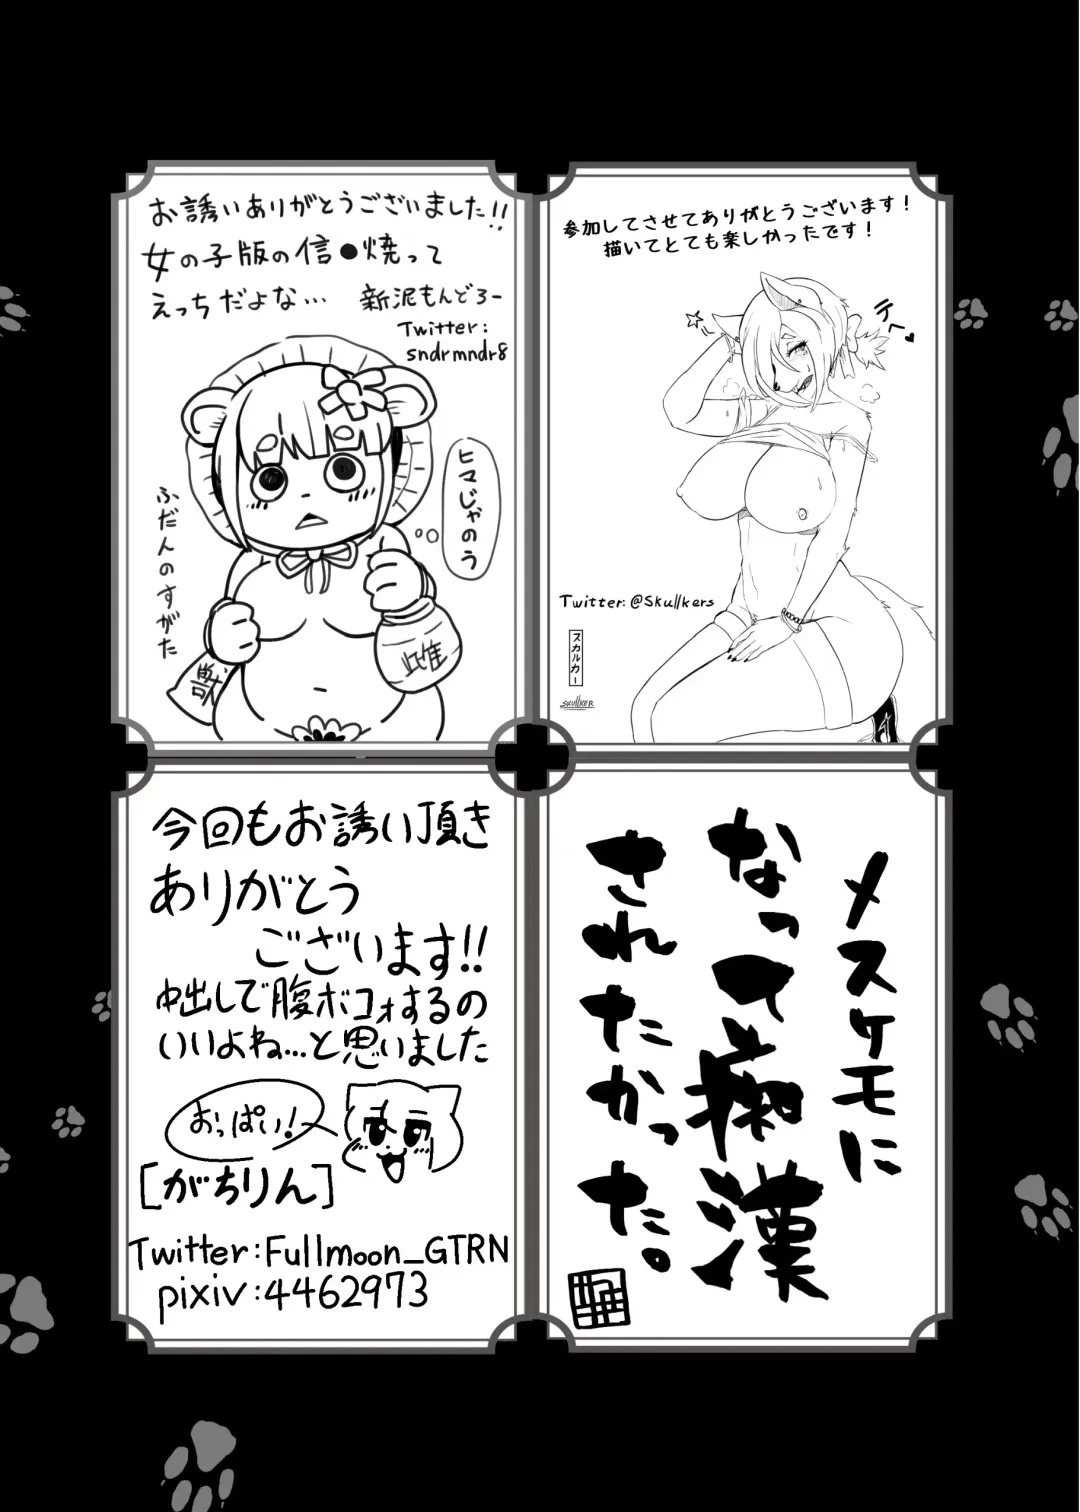 お誘いありがとうございました!!
女の子版の信●焼って
えっちだよな…
新泥もんどろー
Twitter:
sndrmndr8
ヒマじゃのう
ふだんのすがた
獣
雌
参加してさせてありがとうございます!
描いてとても楽しかったです!
テヘ♥
Twitter:@Skullkers
スカルカー
SKUllKER
今回もお誘い頂き
ありがとう
ございます!!
中出しで腹ボコォするの
いいよね…と思いました
おっぱい!
[がちりん]
Twitter:Fullmoon_GTRN
pixiv:4462973
メスケモに
なって痴漢
されたかった。